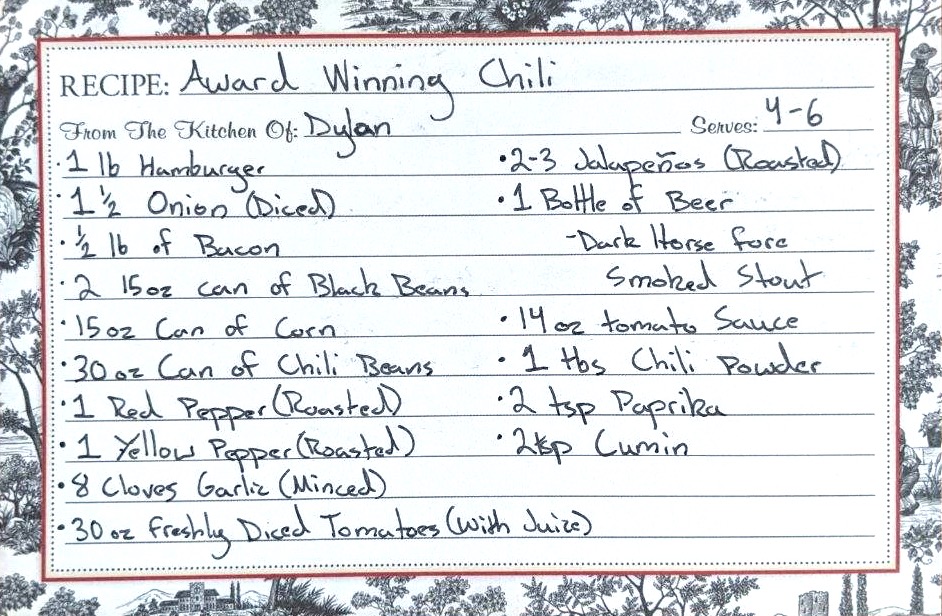 RECIPE: Award Winning Chili
From The Kitchen Of: Dylan Serves: 4-6
• 1 lb Hamburger
• 1 ½ Onion (Diced)
• ½ lb of Bacon
• 2 15oz can of Black Beans
• 15oz Can of Corn
• 30 oz Can of Chili Beans
• 1 Red Pepper (Roasted)
• 1 Yellow Pepper (Roasted)
• 8 Cloves Garlic (Minced)
• 30 oz Freshly Diced Tomatoes (With Juice)
• 2-3 Jalapeños (Roasted)
• 1 Bottle of Beer
- Dark Horse Fore
Smoked Stout
• 14 oz tomato Sauce
• 1 tbs Chili Powder
• 2 tsp Paprika
• 2 tsp Cumin